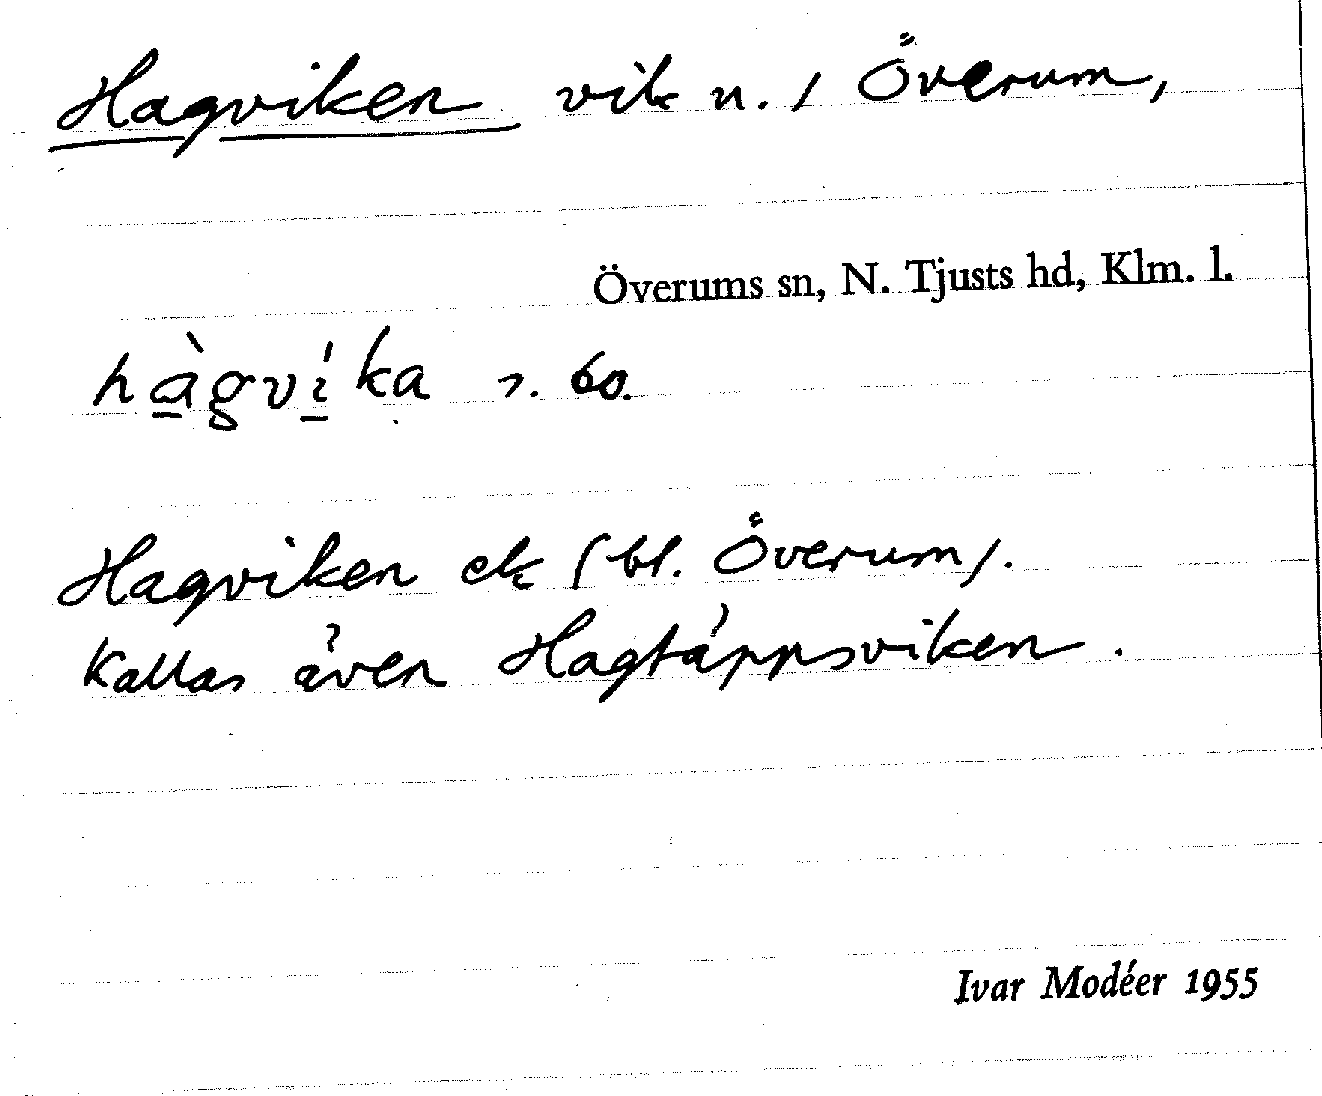 Hagviken vik n. / Överum,
Överums sn, N. Tjusts hd, Klm. l.
hàgvíka s. 60.
Hagviken ek (bl. Överum).
Kallas även Hagtäppsviken.
Ivar Modéer 1955